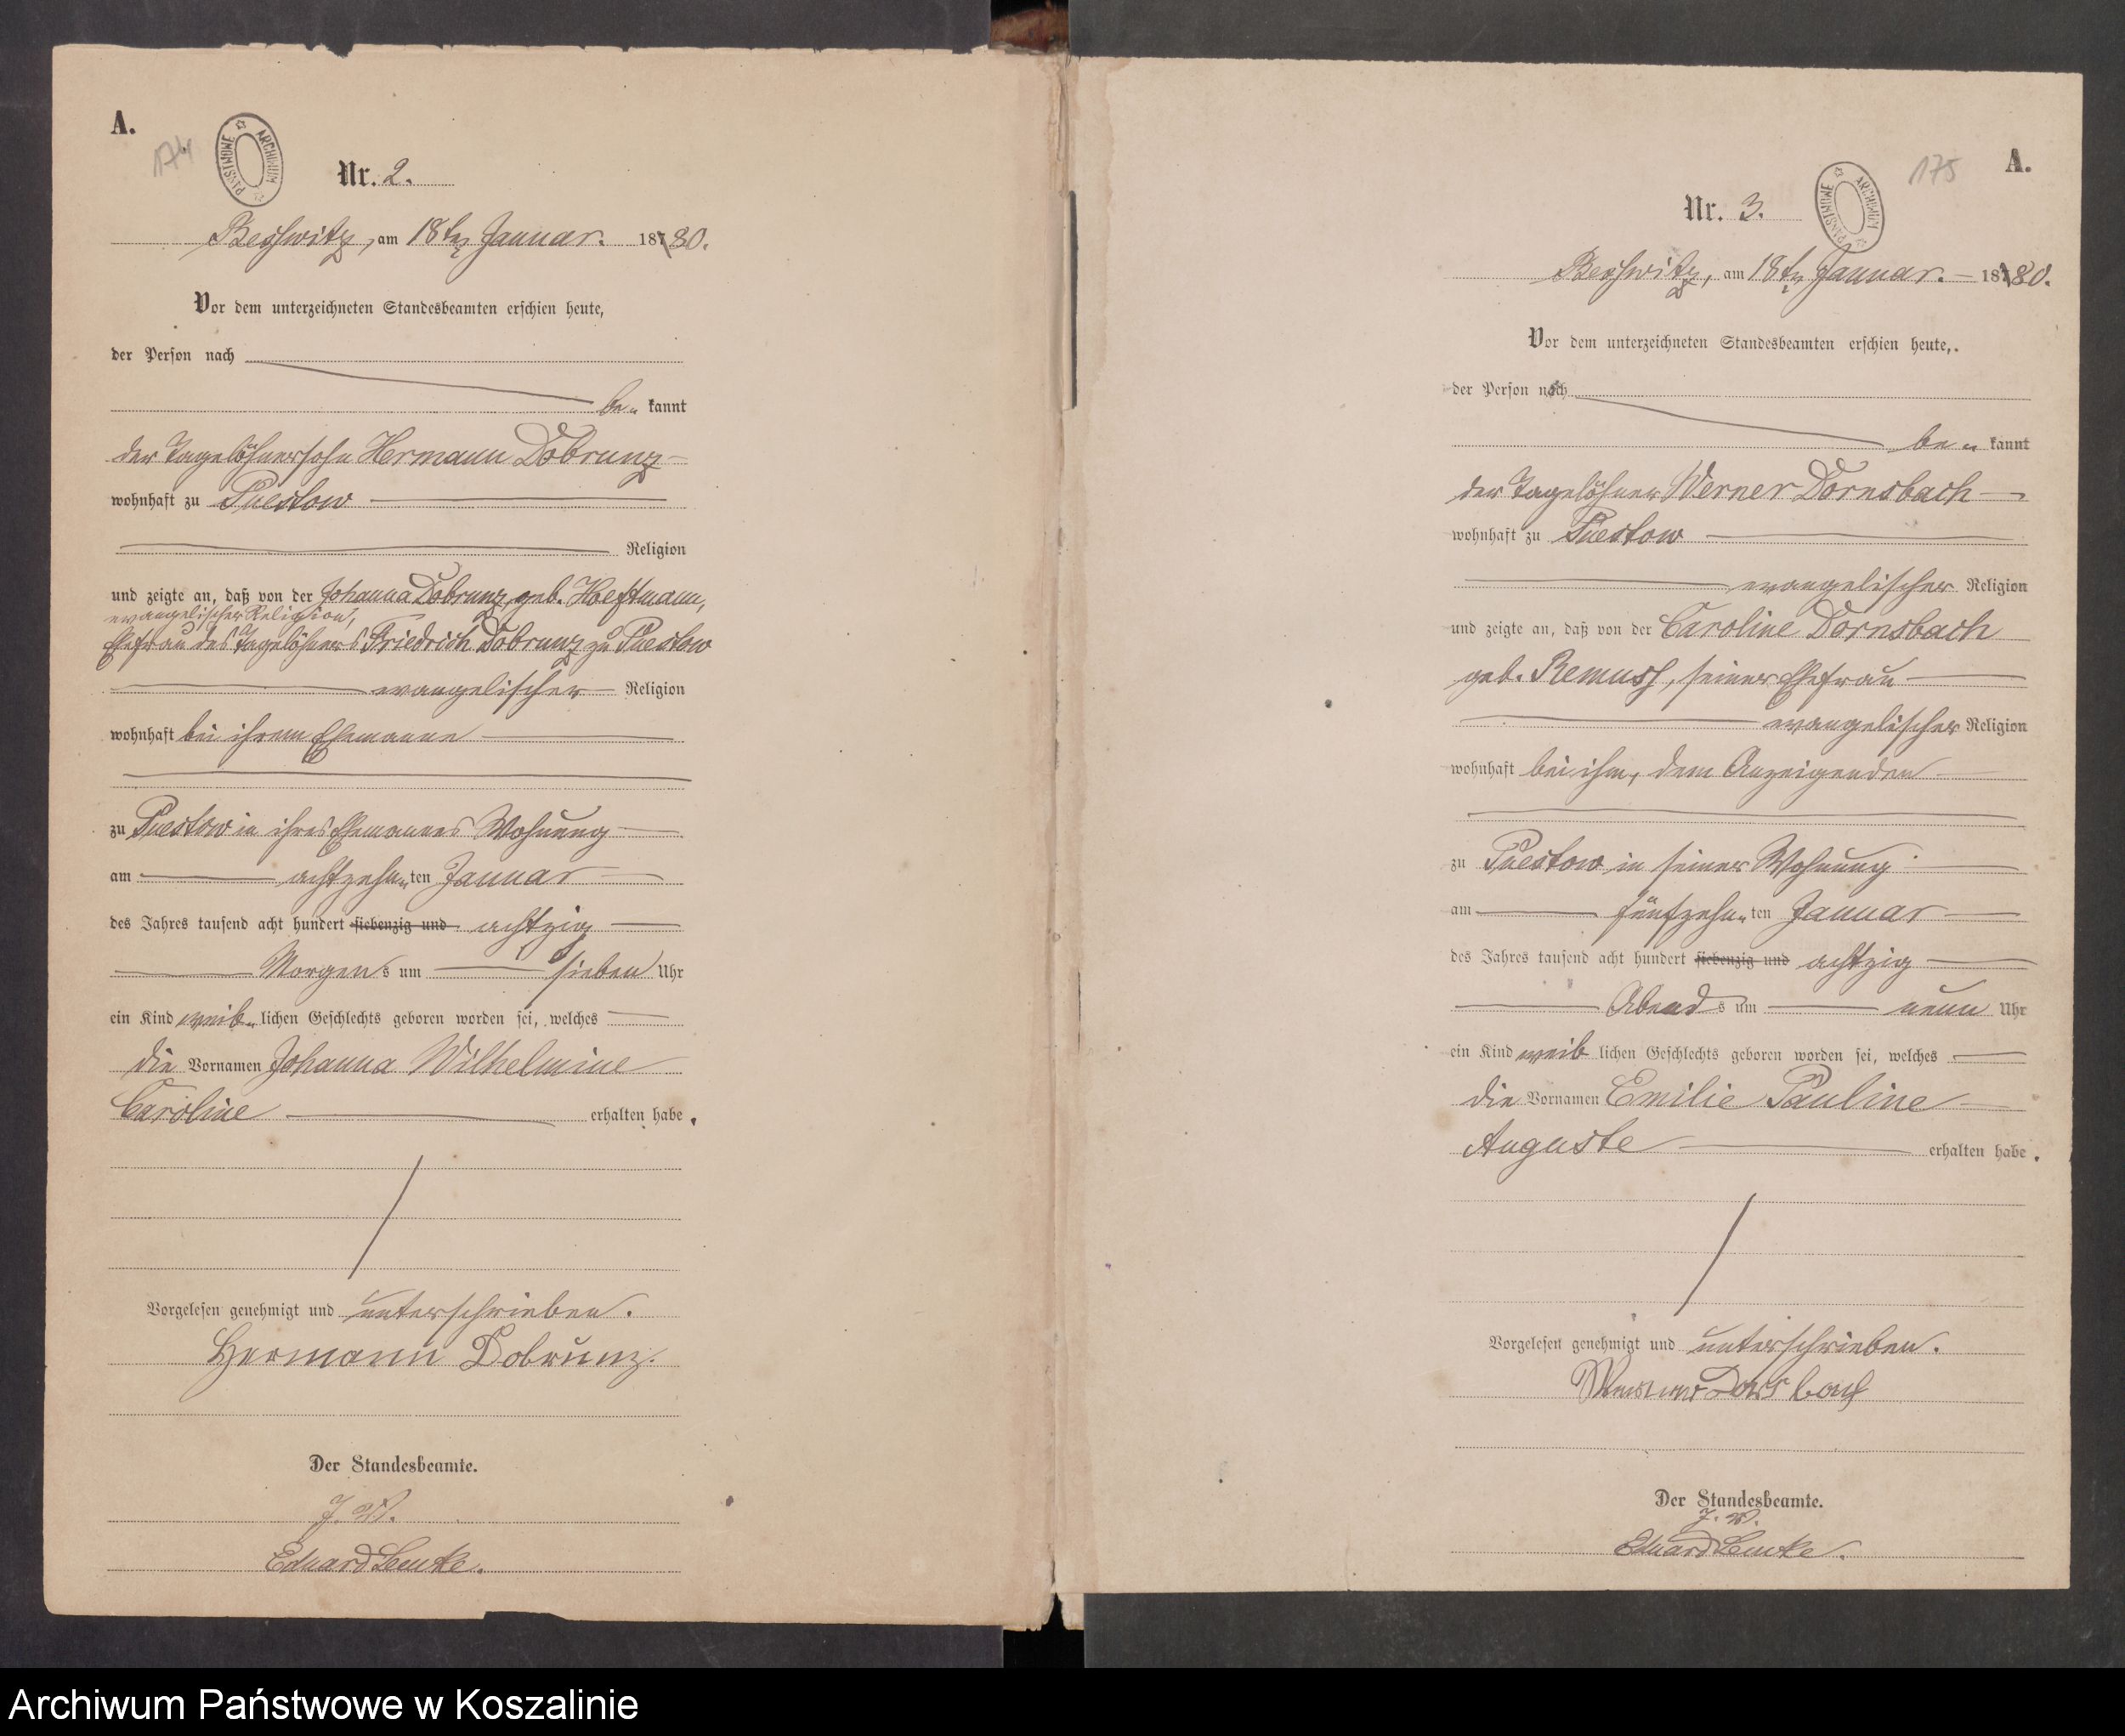 A.
174
PAŃSTWOWE ARCHIWUM
Nr. 2.
Beßwitz, am 18ten Januar. 1880.
Vor dem unterzeichneten Standesbeamten erschien heute,
der Person nach
be= kannt
der Tagelöhnersohn Hermann Dobrunz
wohnhaft zu Puestow
Religion
und zeigte an, daß von der Johanna Dobrunz, geb. Heftmann,
evangelischer Religion,
Ehefrau des Tagelöhners Friedrich Dobrunz zu Puestow
evangelischer Religion
wohnhaft bei ihrem Ehemanne
zu Puestow in ihres Ehemannes Wohnung
am achtzehn=ten Januar
des Jahres tausend acht hundert siebenzig und achtzig
Morgens um sieben Uhr
ein Kind weib=lichen Geschlechts geboren worden sei, welches
die Vornamen Johanna Wilhelmine
Caroline erhalten habe.
Vorgelesen genehmigt und unterschrieben.
Hermann Dobrunz.
Der Standesbeamte.
J. V.
Eduard Lemke.
175
A.
PAŃSTWOWE ARCHIWUM
Nr. 3.
Beßwitz, am 18ten Januar. 1880.
Vor dem unterzeichneten Standesbeamten erschien heute,
der Person nach
be= kannt
der Tagelöhner Werner Dornsbach
wohnhaft zu Puestow
evangelischer Religion
und zeigte an, daß von der Caroline Dornsbach
geb. Remuss, seiner Ehefrau
evangelischer Religion
wohnhaft bei ihm, dem Anzeigenden
zu Puestow in seiner Wohnung
am fünfzehn=ten Januar
des Jahres tausend acht hundert siebenzig und achtzig
Abends um neun Uhr
ein Kind weiblichen Geschlechts geboren worden sei, welches
die Vornamen Emilie Pauline
Auguste erhalten habe.
Vorgelesen genehmigt und unterschrieben.
Der Standesbeamte.
J. V.
Eduard Lemke.
Archiwum Państwowe w Koszalinie